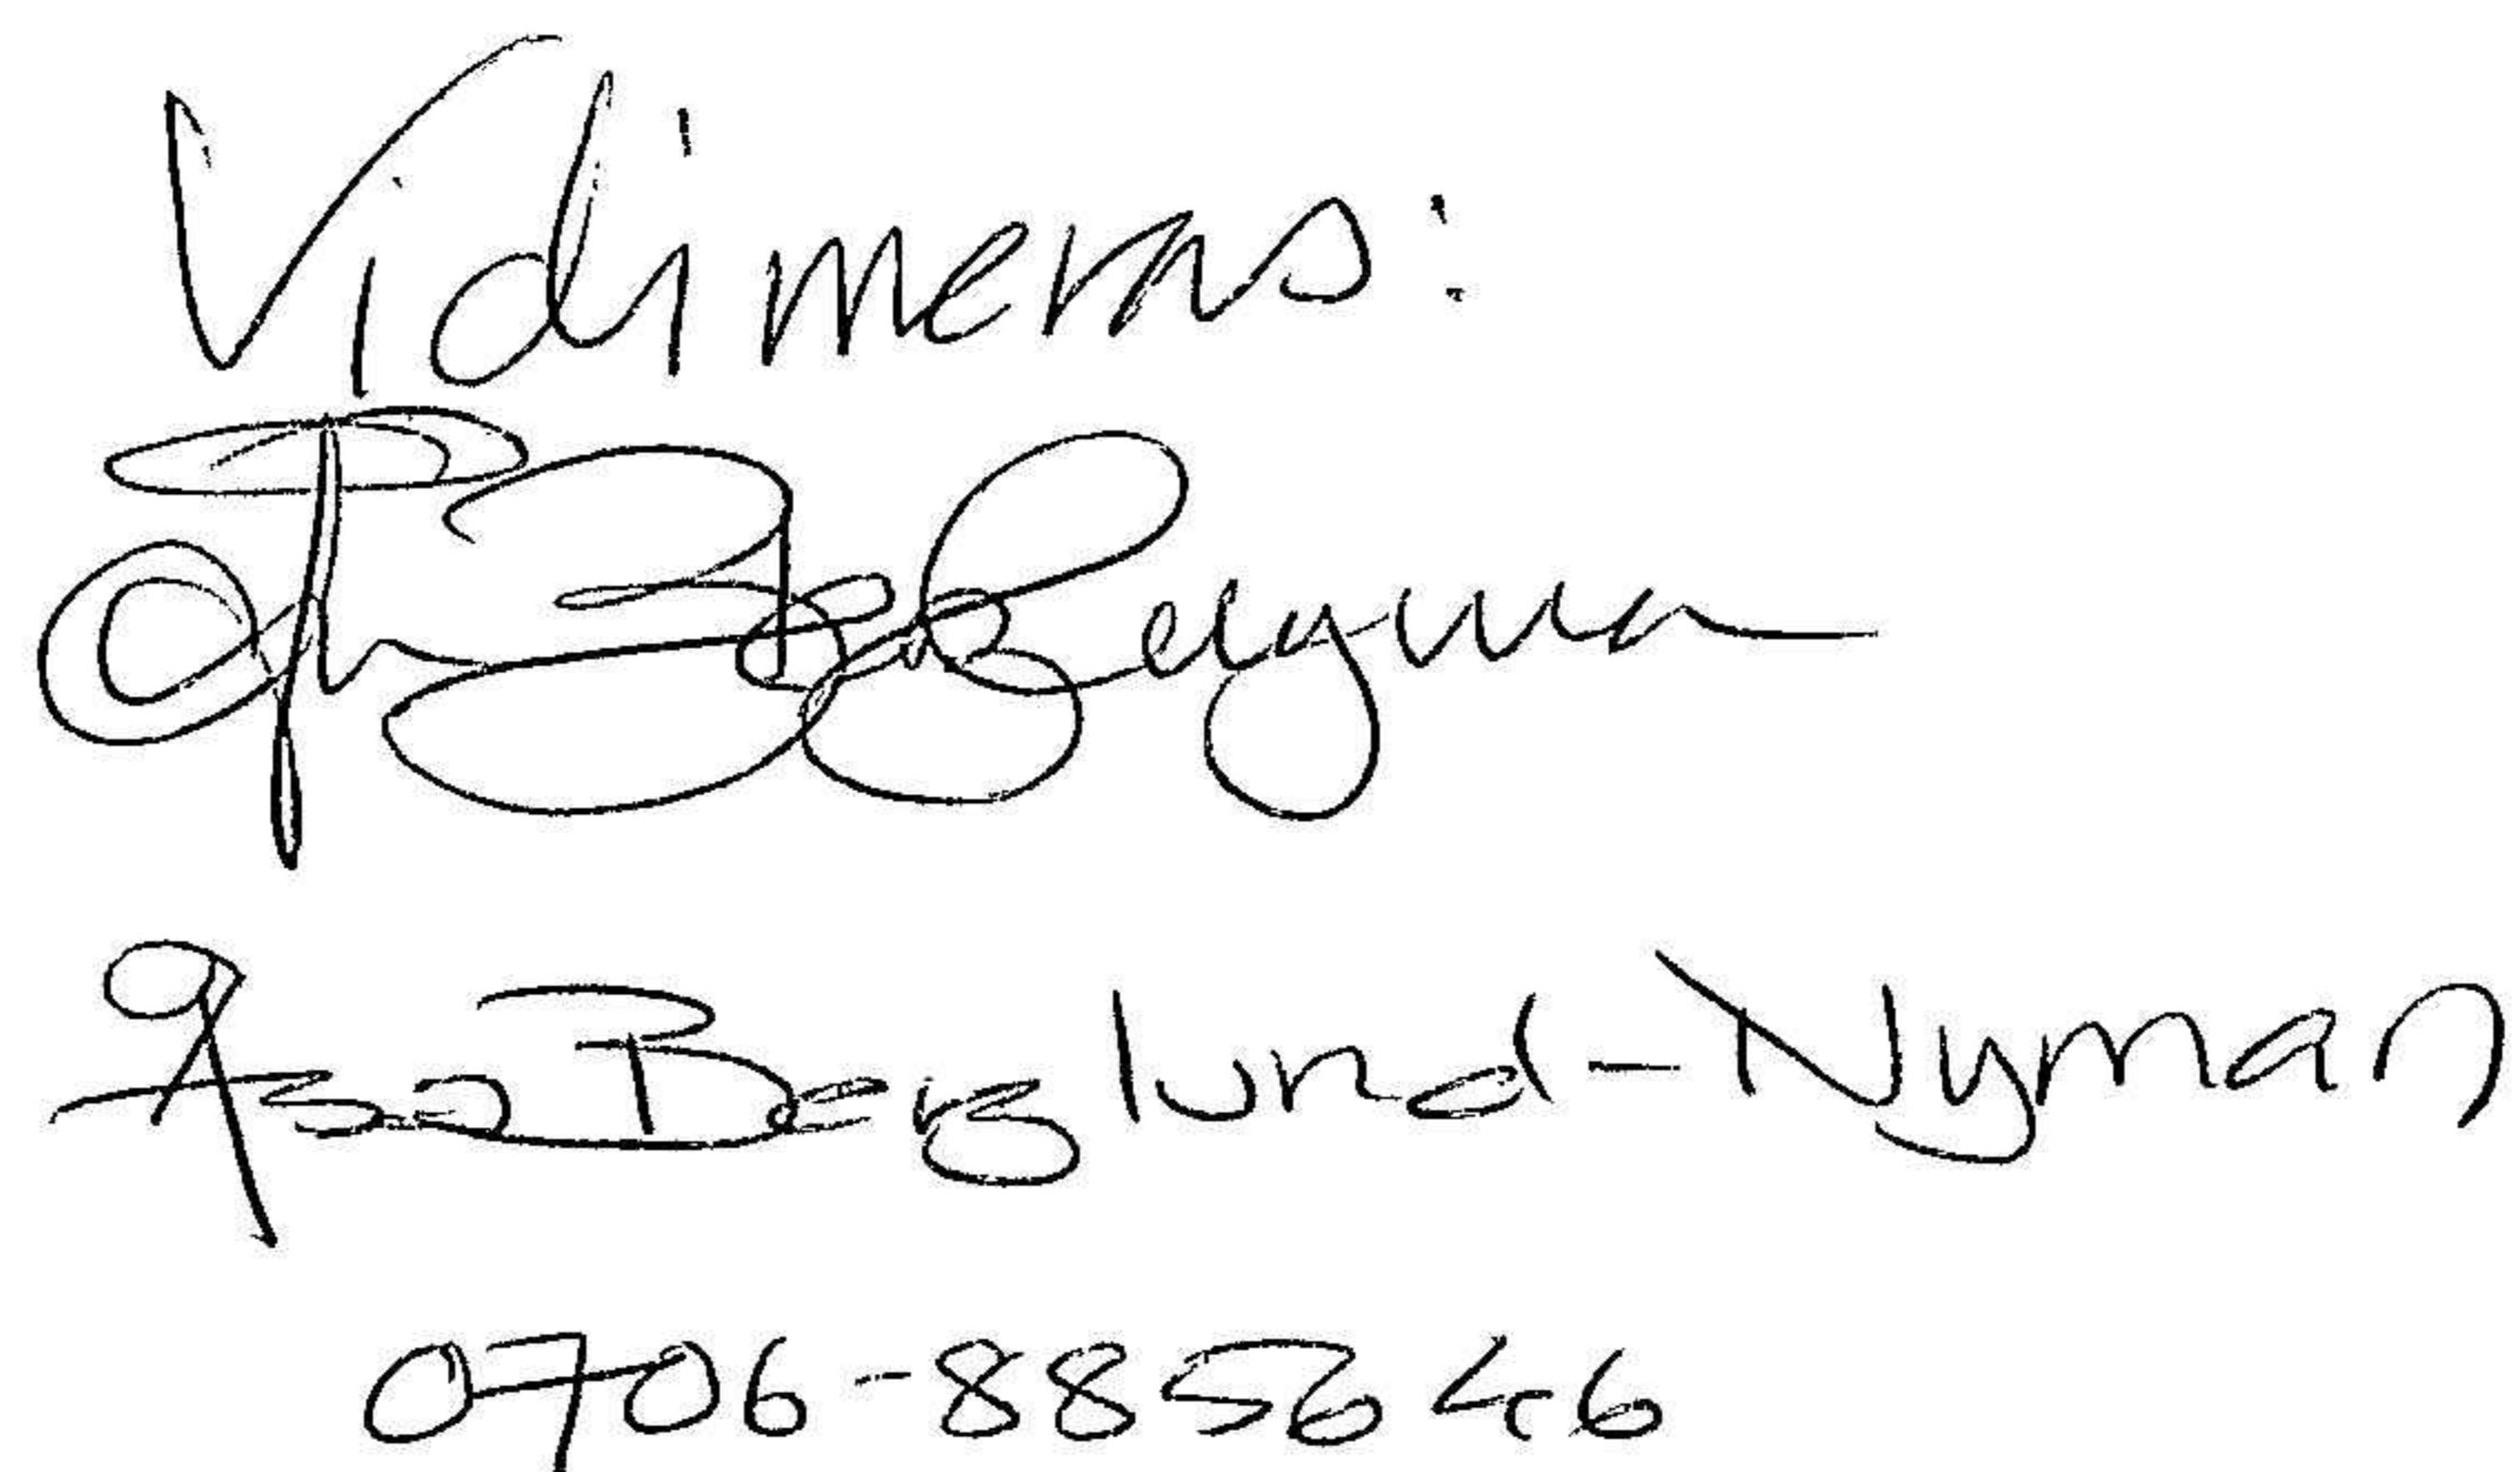 Vidimeras:
Åsa Berglund-Nyman
0706-885646